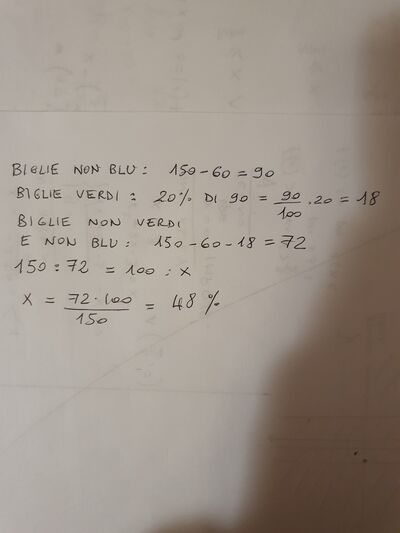 BIGLIE NON BLU: 150-60 = 90
BIGLIE VERDI: 20% DI 90 = 90/100 · 20 = 18
BIGLIE NON VERDI
E NON BLU: 150-60-18 = 72
150 : 72 = 100 : X
X = 72·100/150 = 48 %